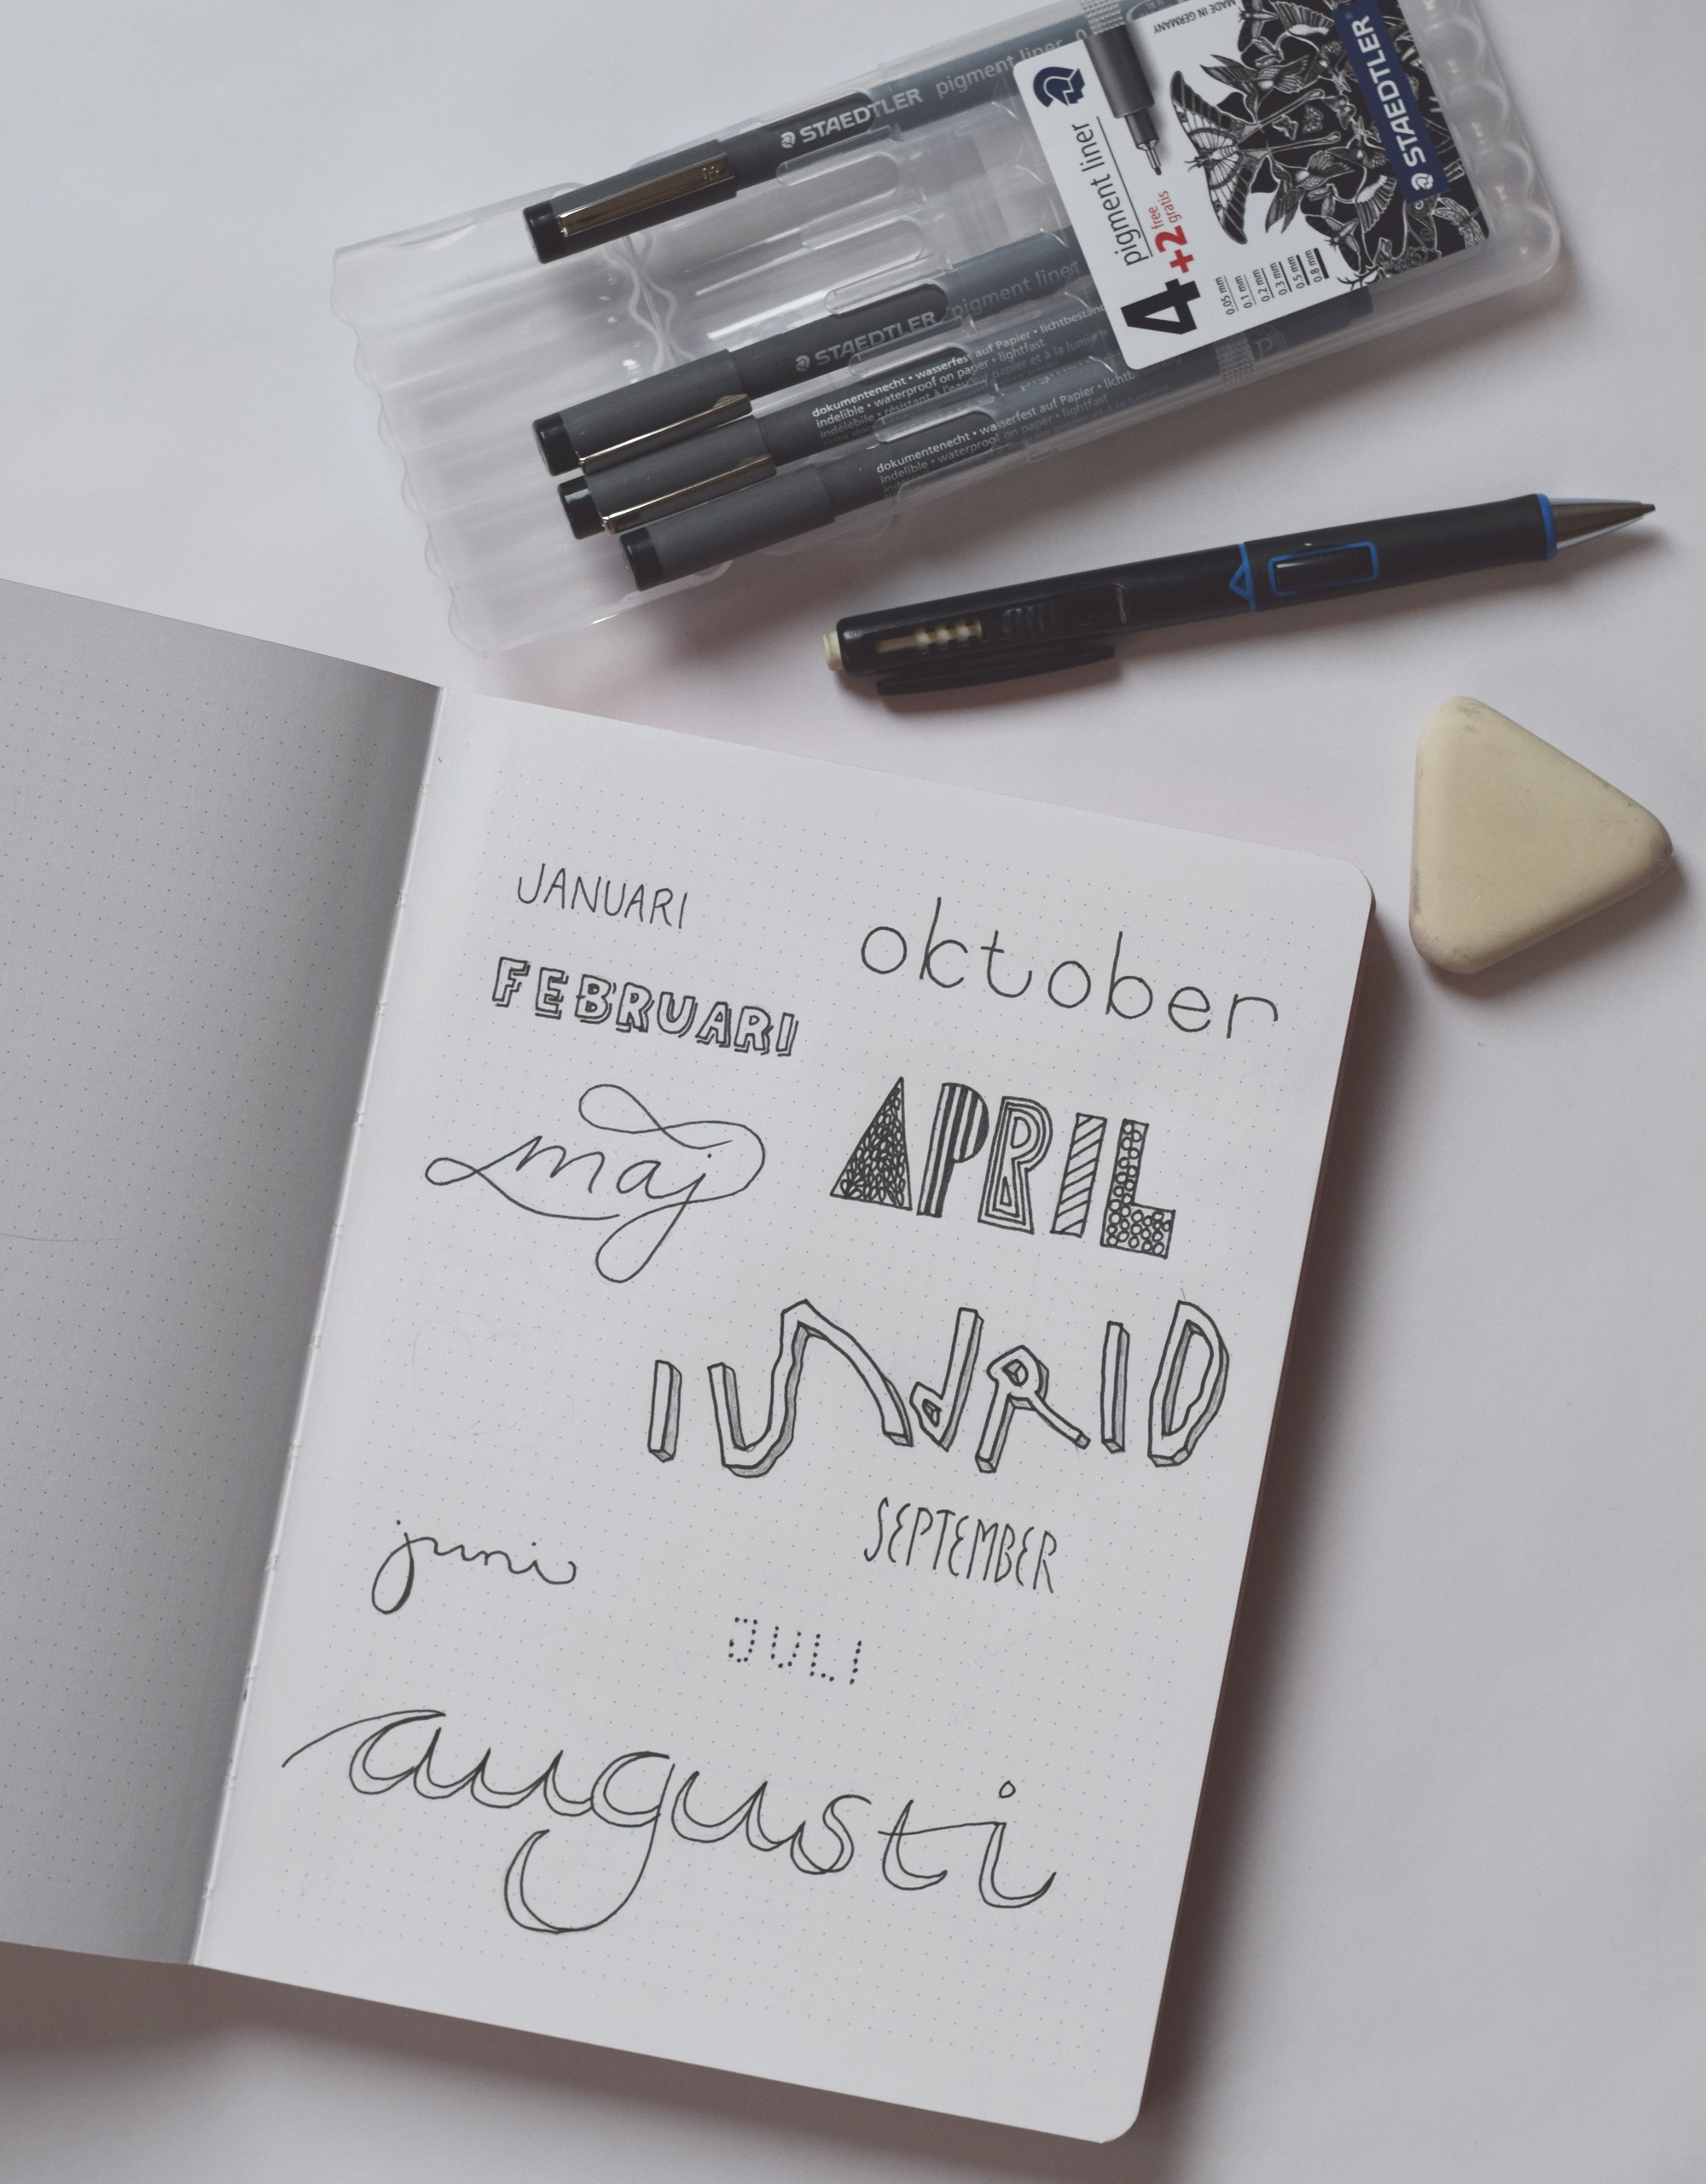 STAEDTLER pigment liner 0
MADE IN GERMANY
STAEDTLER
pigment liner
4+2 free gratis
0.05 mm
0.1 mm
0.2 mm
0.3 mm
0.5 mm
0.8 mm
STAEDTLER pigment liner
dokumentenecht • wasserfest auf Papier • lichtbeständ
indelible • waterproof on paper • lightfast
indélébile • résistant à l'eau sur papier et à la lumière
dokumentenecht • wasserfest auf Papier • lichtb
indelible • waterproof on paper • lightfast
JANUARI
oktober
FEBRUARI
maj
APRIL
SEPTEMBER
juni
JULI
augusti